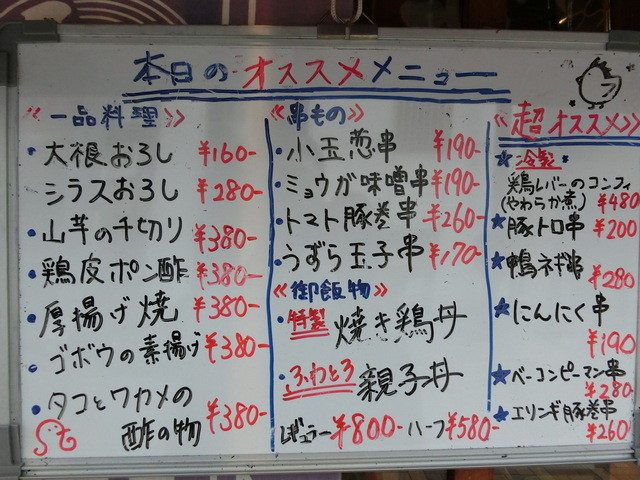 本日のオススメメニュー
《一品料理》
・大根おろし ¥160-
・シラスおろし ¥280-
・山芋の千切り ¥380-
・鶏皮ポン酢 ¥380-
・厚揚げ焼 ¥380-
・ゴボウの素揚げ ¥380-
・タコとワカメの
酢の物 ¥380-
《串もの》
・小玉葱串 ¥190-
・ミョウが味噌串 ¥190-
・トマト豚巻串 ¥260-
・うずら玉子串 ¥170-
《御飯物》
・特製 焼き鶏丼
・ふわとろ 親子丼
レギュラー ¥800- ハーフ ¥580-
《超オススメ》
★冷製
鶏レバーのコンフィ
(やわらか煮) ¥480
★豚トロ串 ¥200
★鴨ネギ串
¥280
★にんにく串
¥190
★ベーコンピーマン串
¥280
★エリンギ豚巻串
¥260